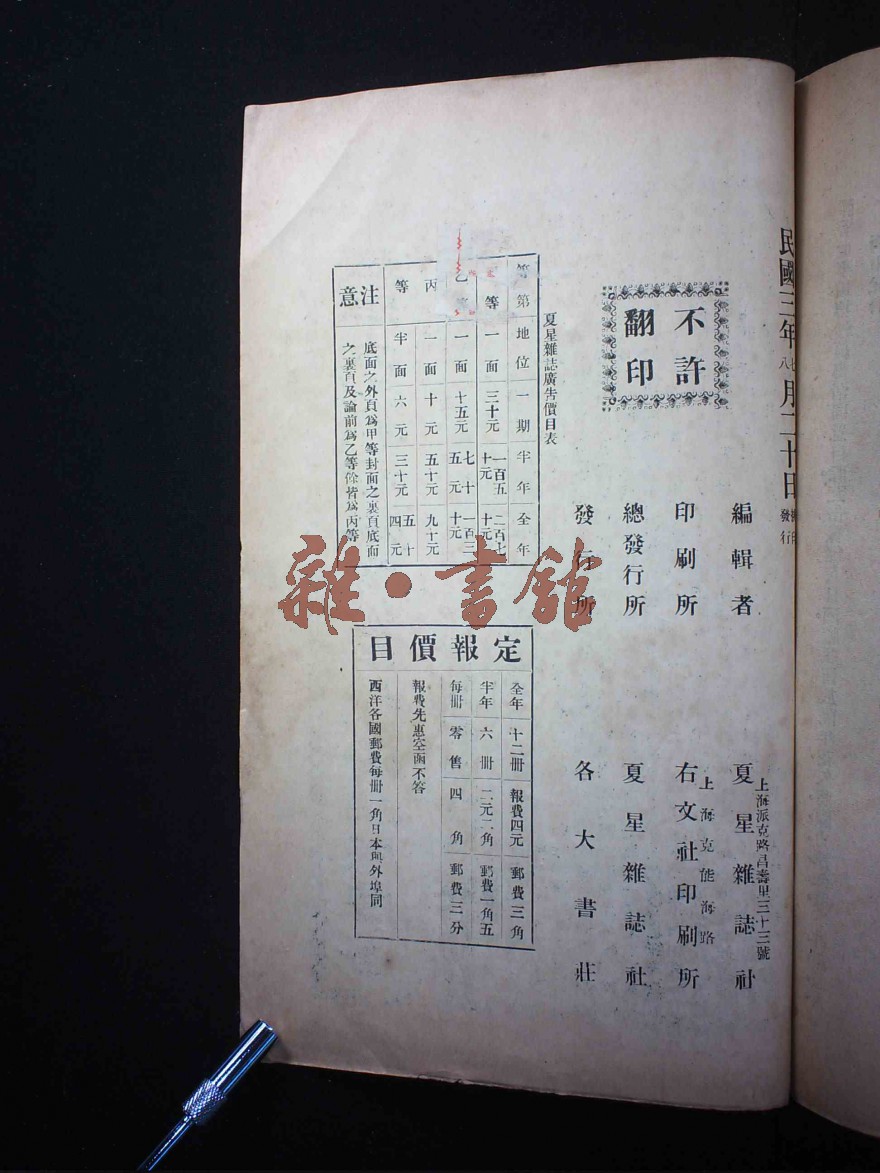 民國三年七月二十日
八
發行
不許
翻印
編輯者
上海派克路昌壽里三十三號
夏星雜誌社
印刷所
上海克能海路
右文社印刷所
總發行所
夏星雜誌社
發行所
各大書莊
夏星雜誌廣告價目表
等第 地位 一期 半年 全年
等 一面 三十元 一百五十元 二百七十元
乙 一面 十五元 七十五元 一百三十元
丙 一面 十元 五十元 九十元
等 半面 六元 三十元 五十四元
注意
底面之外頁爲甲等封面之裏頁底面
之裏頁及論前爲乙等餘皆爲丙等
定報價目
全年 十二冊 報費四元 郵費三角
半年 六冊 二元二角 郵費一角五
每冊 零售 四角 郵費三分
報費先惠空函不答
西洋各國郵費每冊一角日本與外埠同
雜·書館